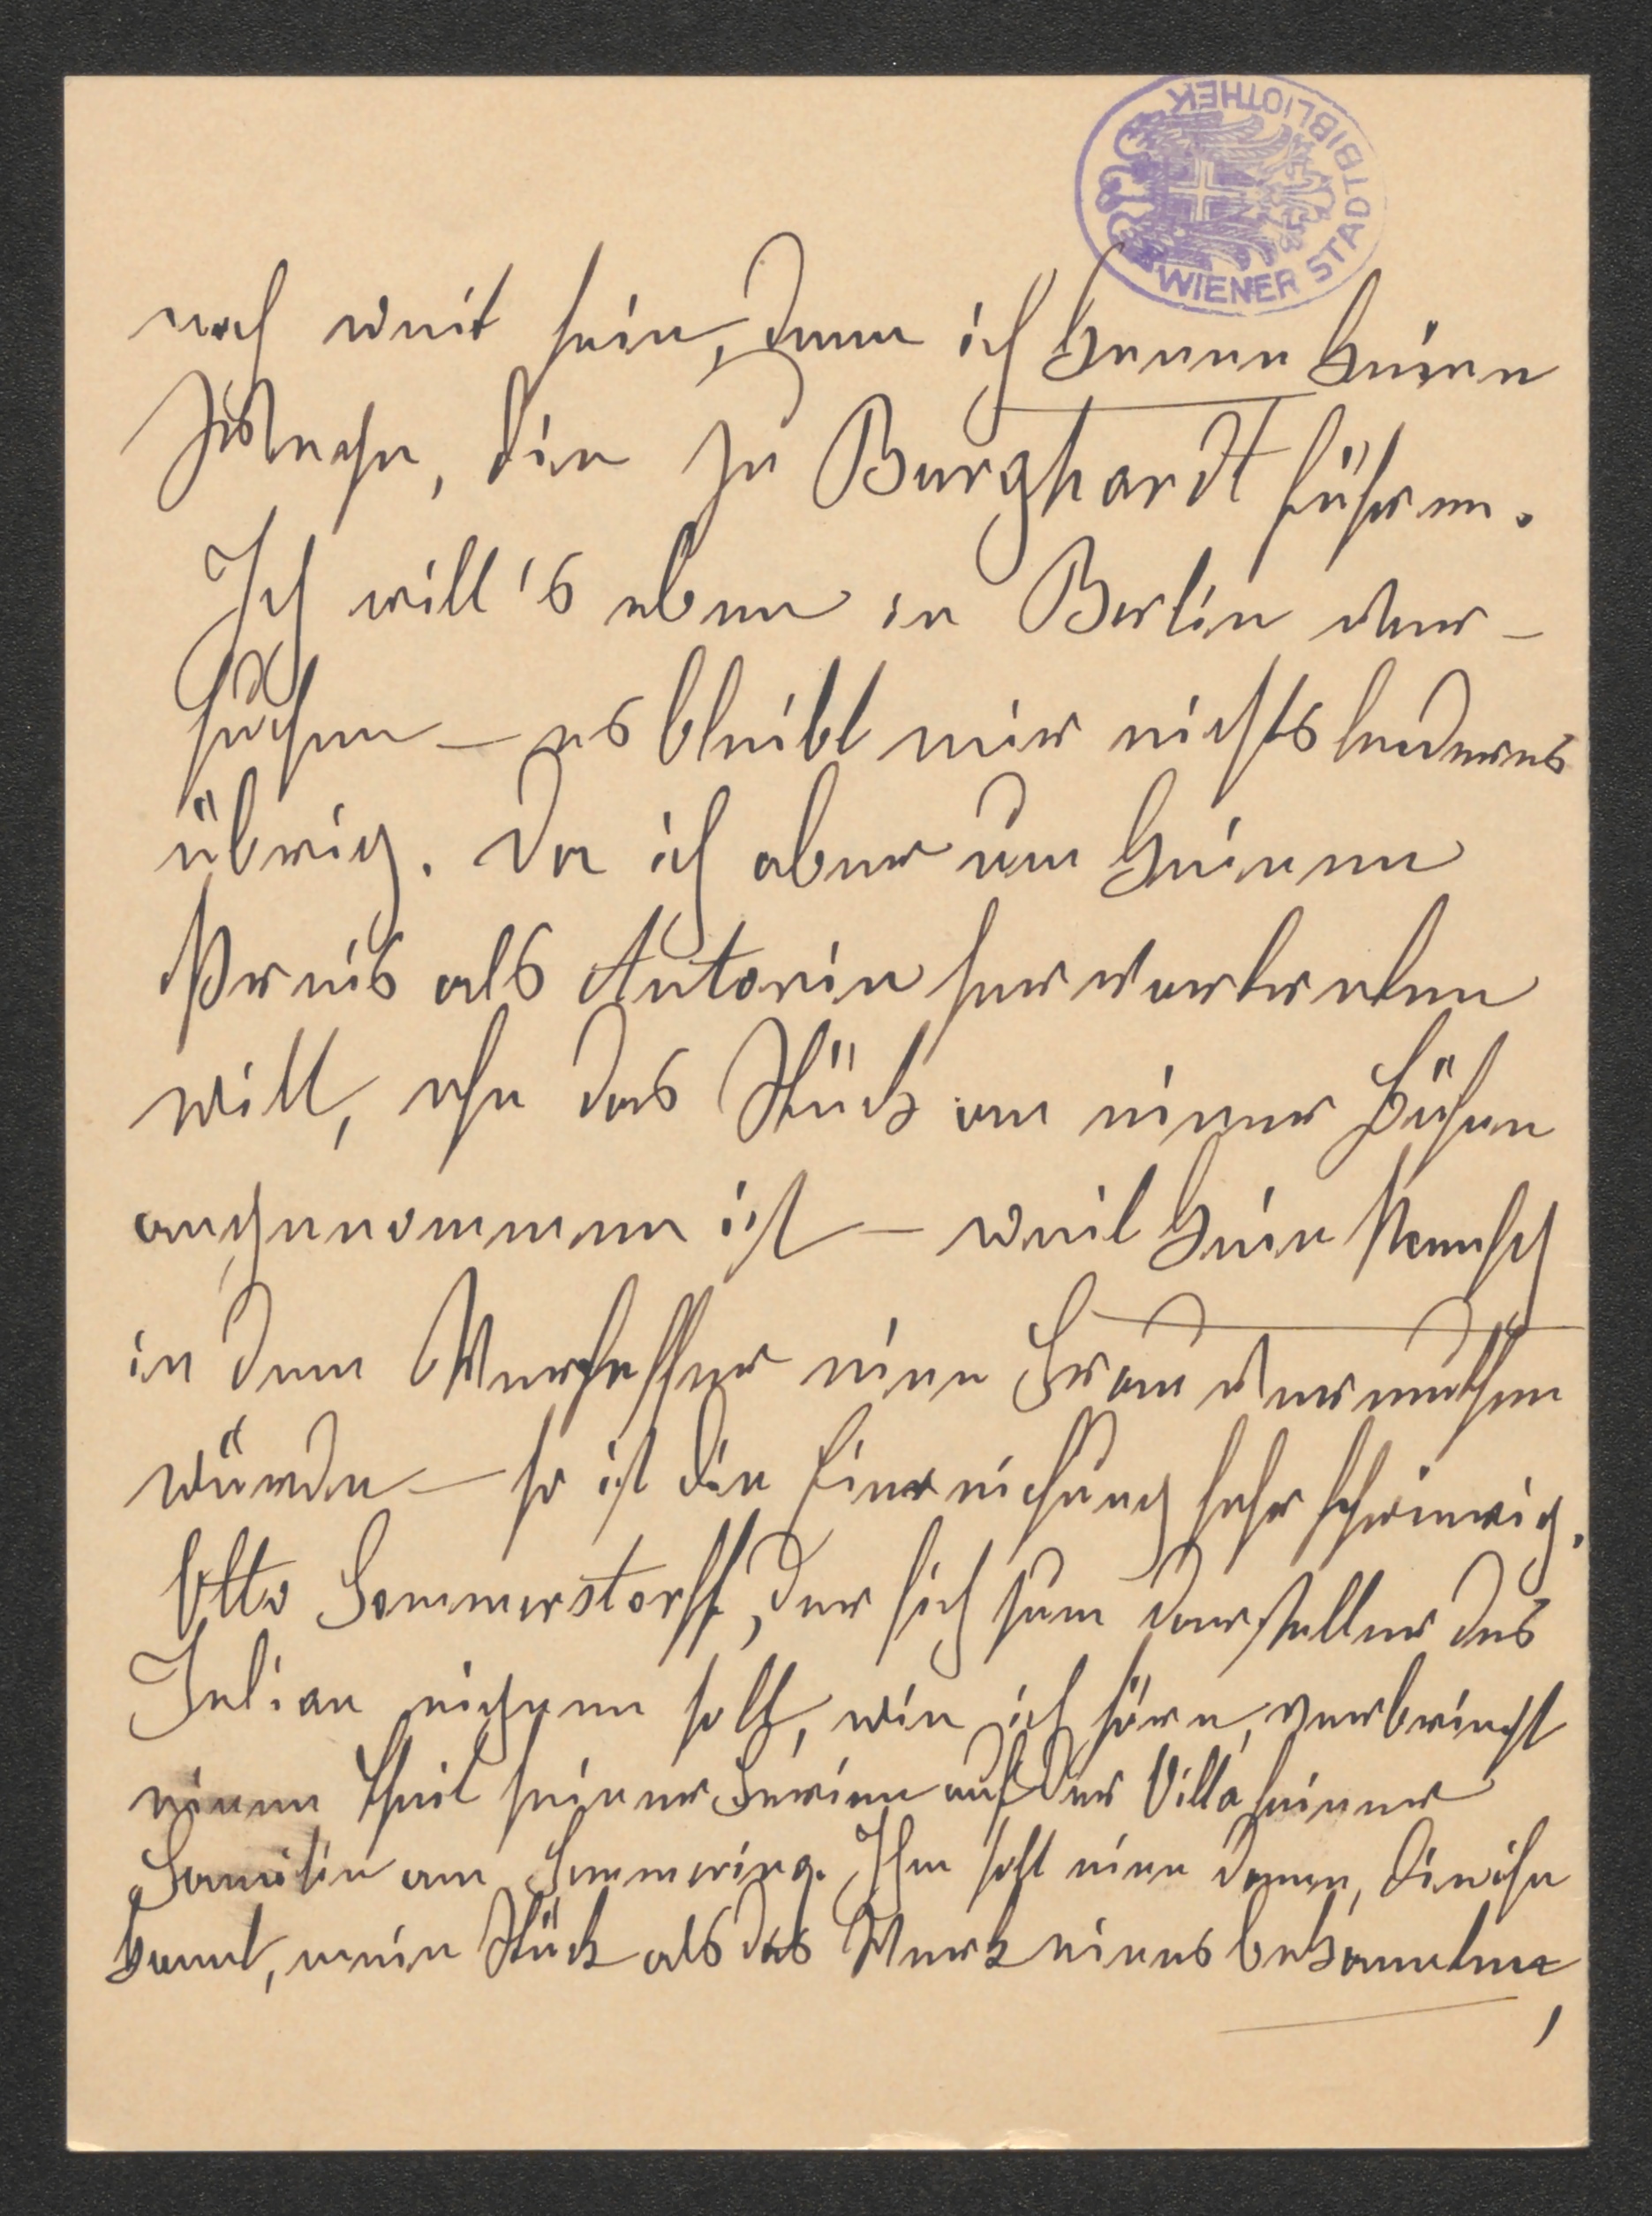 WIENER STADTBIBLIOTHEK
noch weit sein, denn ich kenne keine
Wege, die zu Burghardt führen.
Ich will's eben in Berlin ver-
suchen – es bleibt mir nichts anderes
übrig. Da ich aber um keinen
Preis als Autorin hervortreten
will, ehe das Stück an einer Bühne
angenommen ist – weil kein Mensch
in dem Verfasser eine Frau vermuthen
würde – so ist die Einreichung sehr schwierig.
Otto Sommerstorff, der sich zum Darsteller des
Julian eignen soll, wie ich höre, verbringt
einen Theil seiner Ferien auf der Villa seiner
Familie am Semmering. Ihm soll eine Dame, die ihn
kennt, mein Stück als das Werk eines bekannten,